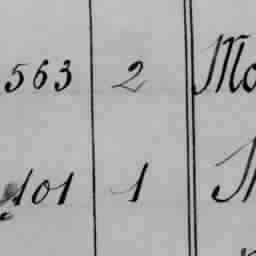 563 2 Mo
101 1